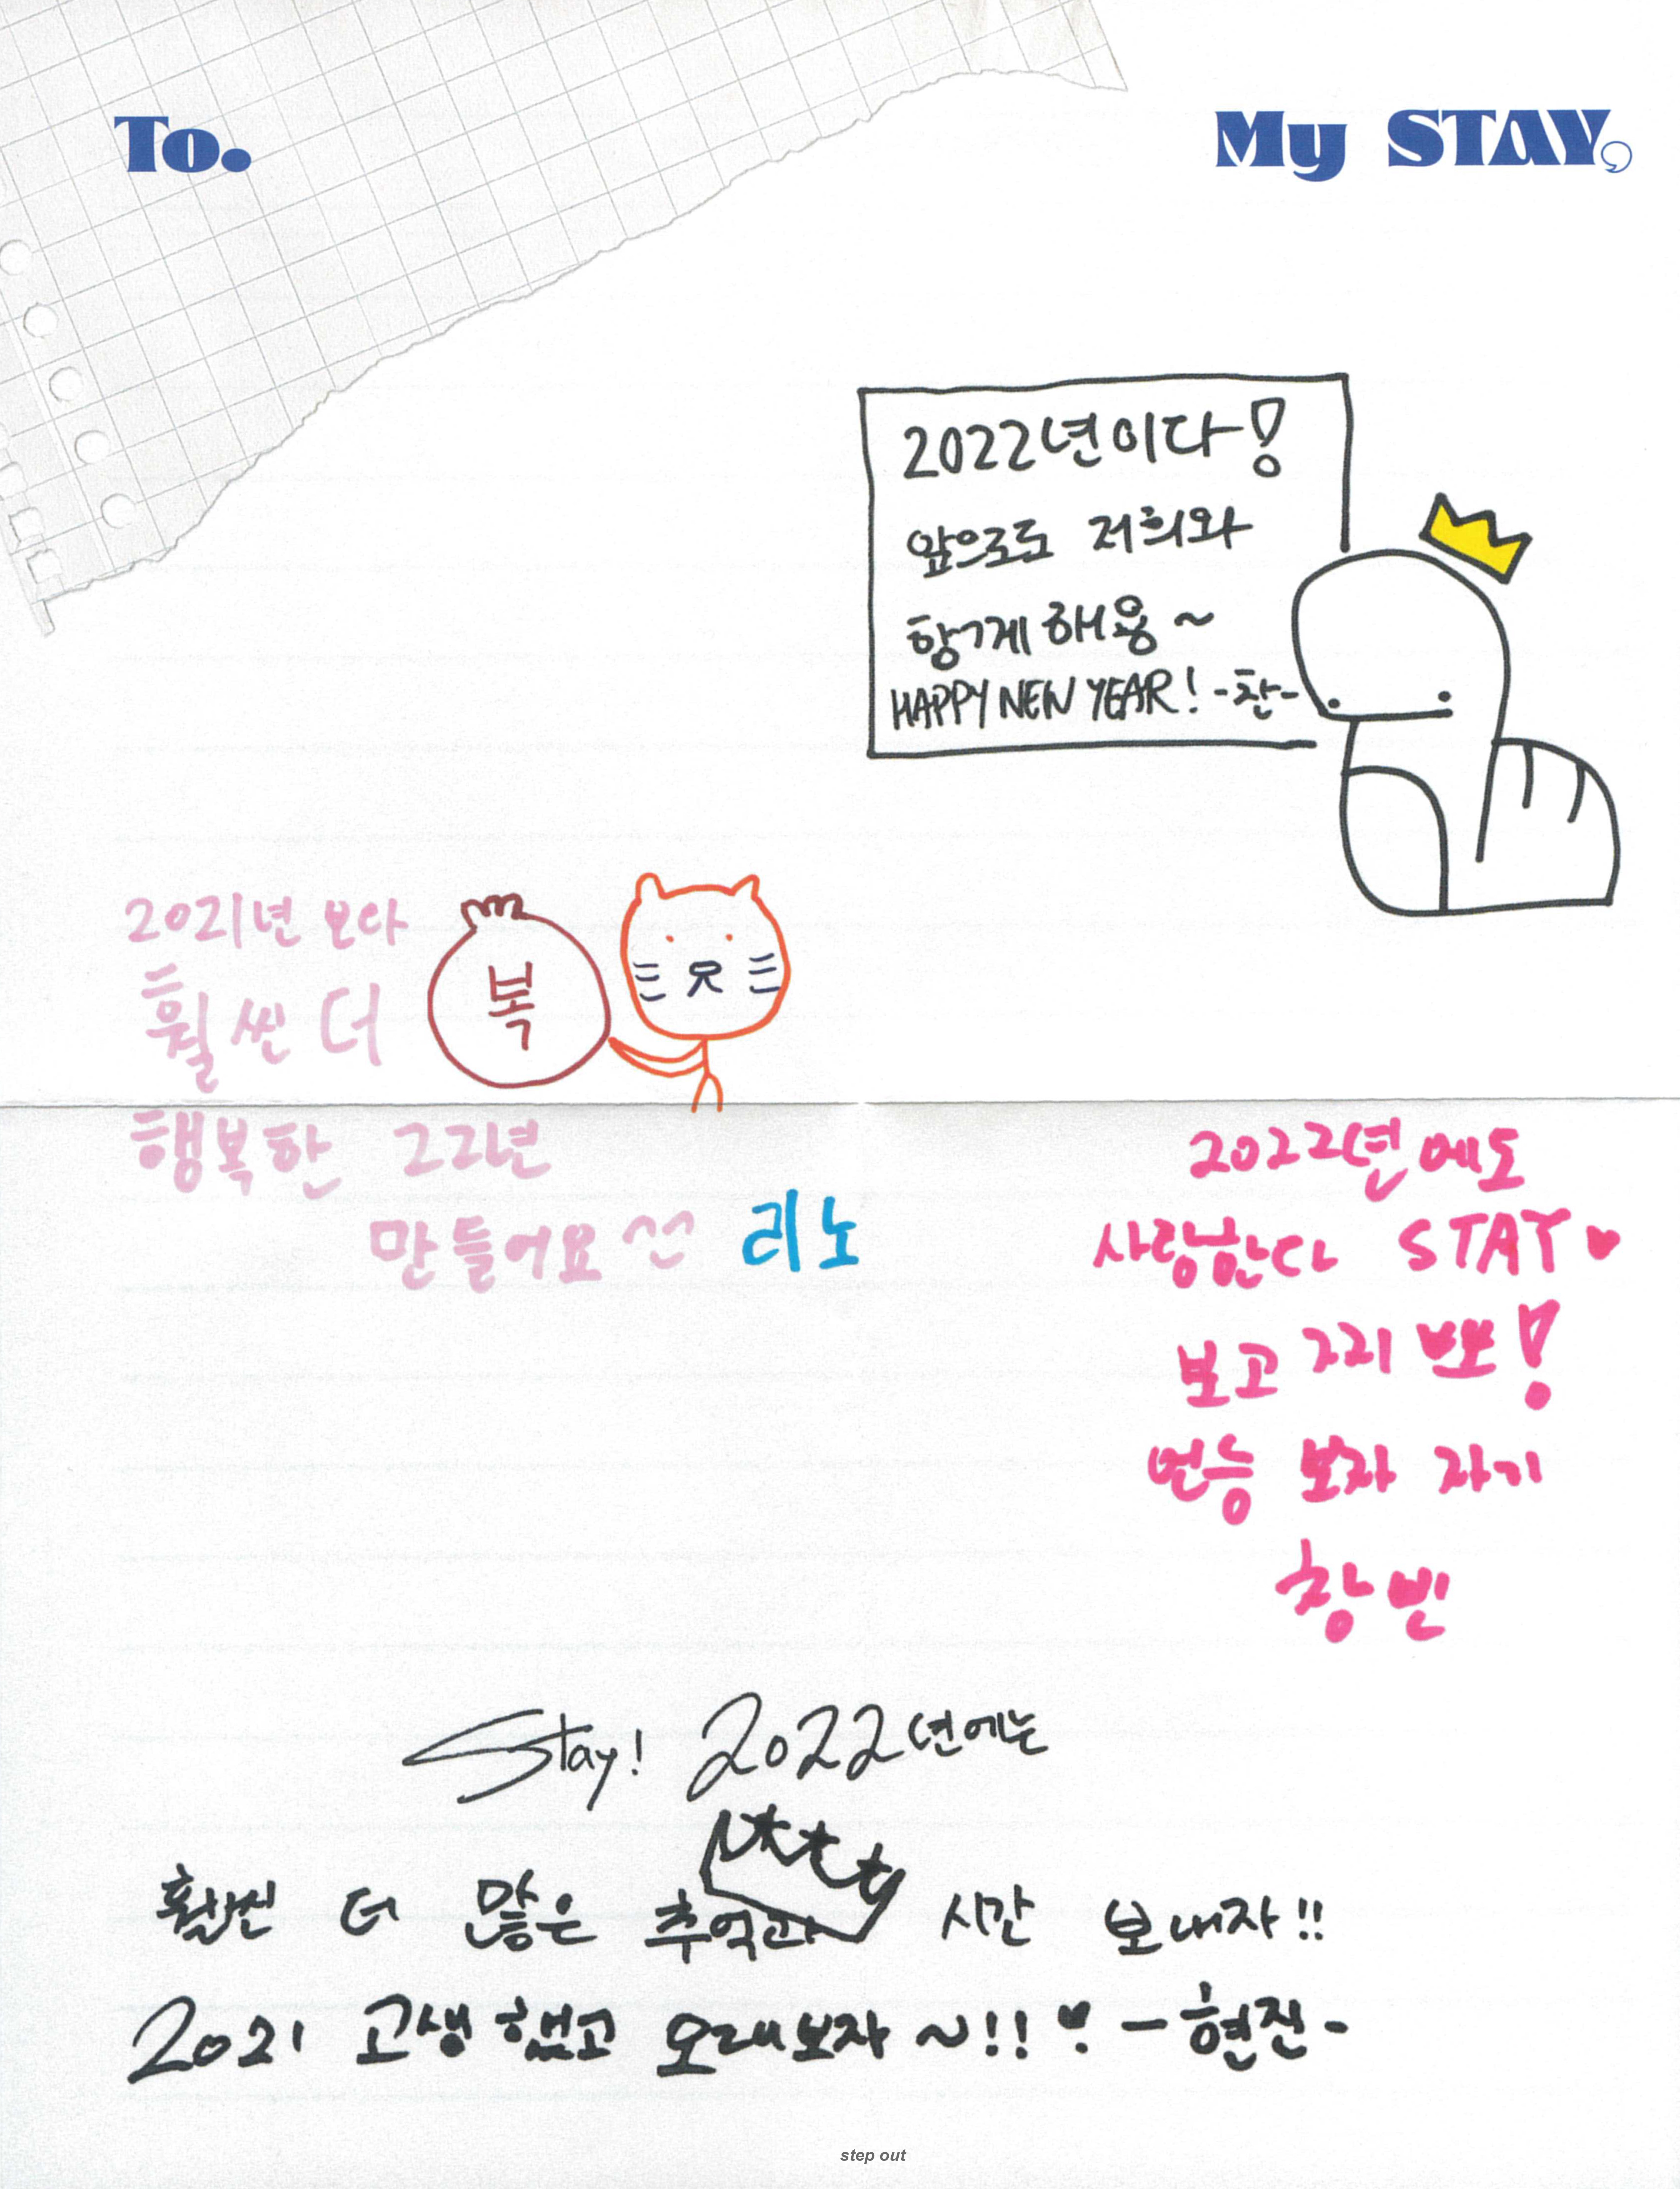 To. My STAY,
2022년이다!
앞으로도 저희와
함께 해용~
HAPPY NEW YEAR! -찬-
2021년 보다
훨씬 더
복
행복한 22년
만들어요 ^^ 리노
2022년에도
사랑한다 STAY♥
보고 그리 뽀!
연승 보자 자기
창빈
Stay! 2022년에는
훨씬 더 많은 추억과 시간 보내자!!
2021 고생했고 오래보자~!! -현진-
step out